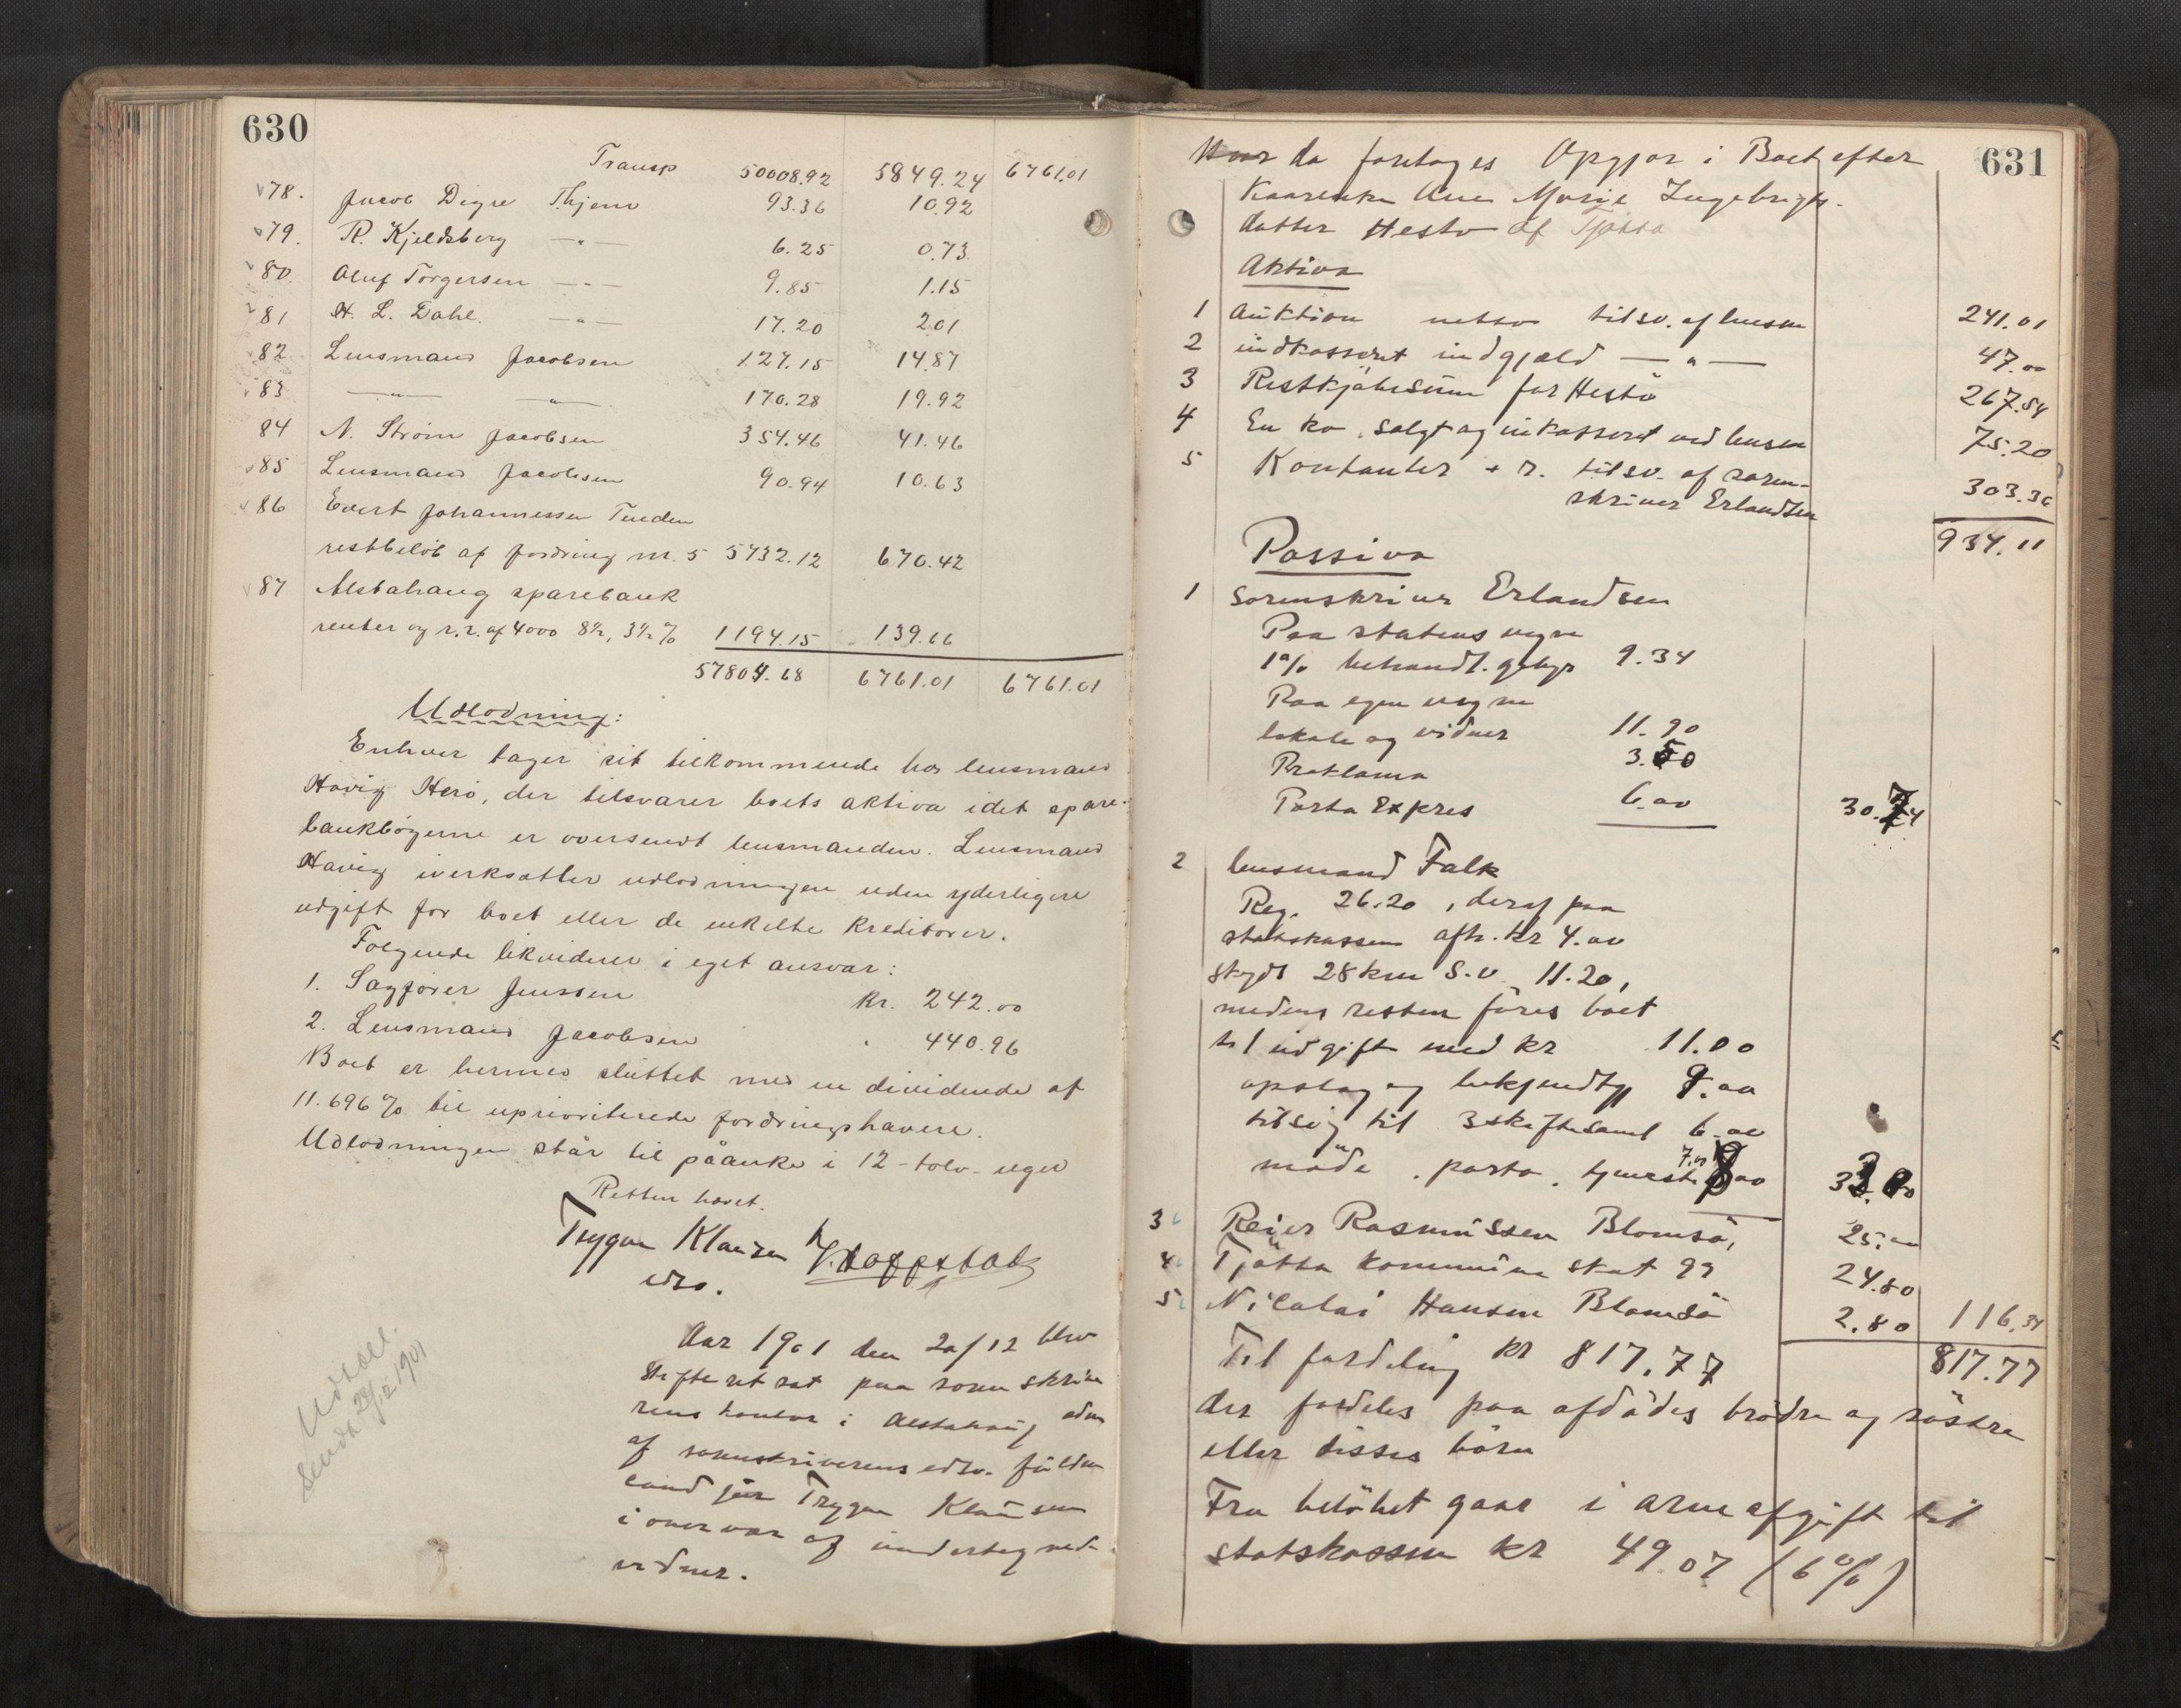 630
Transp 50008.92 5849.24 6761.01
78. Jacob Digre Thjem 93.36 10.92
79. R. Kjeldsberg —"— 6.25 0.73
80. Oluf Torgersen —"— 9.85 1.15
81 H. L. Dahl. —"— 17.20 2.01
82 Lensmand Jacobsen 127.15 14.87
83 —"— —"— 170.28 19.92
84 N. Strøm Jacobsen 354.46 41.46
85 Lensmand Jacobsen 90.94 10.63
86 Evert Johannessen Tenden
restbeløb af fordring nr. 5 5732.12 670.42
87 Alstahaug sparebank
renter og r.r. af 4000 8½, 3½ % 1194.15 139.66
57804.68 6761.01 6761.01
Udlodning:
Enhver tager sit tilkommende hos lensmand
Havig Herø, der tilsvarer boets aktiva idet spare-
bankbøgerne er oversendt lensmanden. Lensmand
Havig iverksætter udlodningen uden yderligere
udgift for boet eller de enkelte kreditorer.
Følgende likviderer i eget ansvar:
1. Sagfører Jenssen kr. 242.00
2. Lensmand Jacobsen " 440.96
Boet er hermed sluttet med en dividende af
11.696 % til uprioriterede fordringshavere.
Udlodningen står til påanke i 12 - tolv - uger
Retten hævet.
Trygve Klausen
edso.
Udsoll.
Senda 28/12 1901
Aar 1901 den 20/12 blev
skifteret sat paa soren skrive
rens kontor i Alstahaug adm
af sorenskriverens edso. fuldm
cand jur Trygve Klausen
i overvær af undertegnede
vidner.
631
Hvor da foretoges Opgjør i Boet efter
Kaarenke Ane Marie Ingebrigts-
datter Hestø af Tjøtta
Aktiva
1 Auktion netto tilsv. af lensm 241.01
2 indkasseret indgjæld —"— 47.00
3 Restkjøbesum for Hestø 267.54
4 En ko, solgt og inkasseret ved lensm 75.20
5 Kontanter + r. tilsv. af soren-
skriver Erlandsen 303.36
934.11
Passiva
1 Sorenskriver Erlandsen
Paa statens vegne
1% behandl. gebyr 9.34
Paa egne vegne
lokale og vidner 11.90
Proklama 3.50
Porto Expres 6.00 30.74
2 lensmand Falk
Reg. 26.20, deraf paa
statskassen afh. kr 4.00
skyds 28 km S.v. 11.20,
medens resten føres boet
til udgift med kr 11.00
opslag og bekjendtg 9.00
tilsig til 3 skiftesaml 6.00
møde, porto, tjeneste 7.00
3 Reier Rasmussen Blomsø, 25.00
4 Tjøtta kommune skat 99 24.80
5 Nicolai Hansen Blomsø 2.80 116.34
Til fordeling kr 817.77 817.77
der fordeles paa afdødes brødre og søstre
eller disses børn
Fra beløbet gaar i arveafgift til
statskassen kr 49.07 (6%)